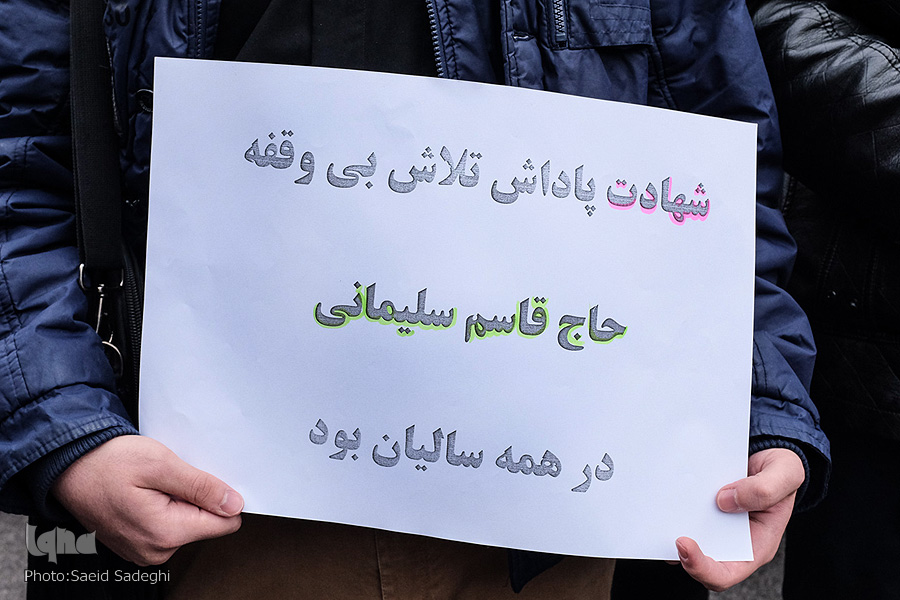 شهادت پاداش تلاش بی وقفه
حاج قاسم سلیمانی
در همه سالیان بود
Iqna
Photo:Saeid Sadeghi